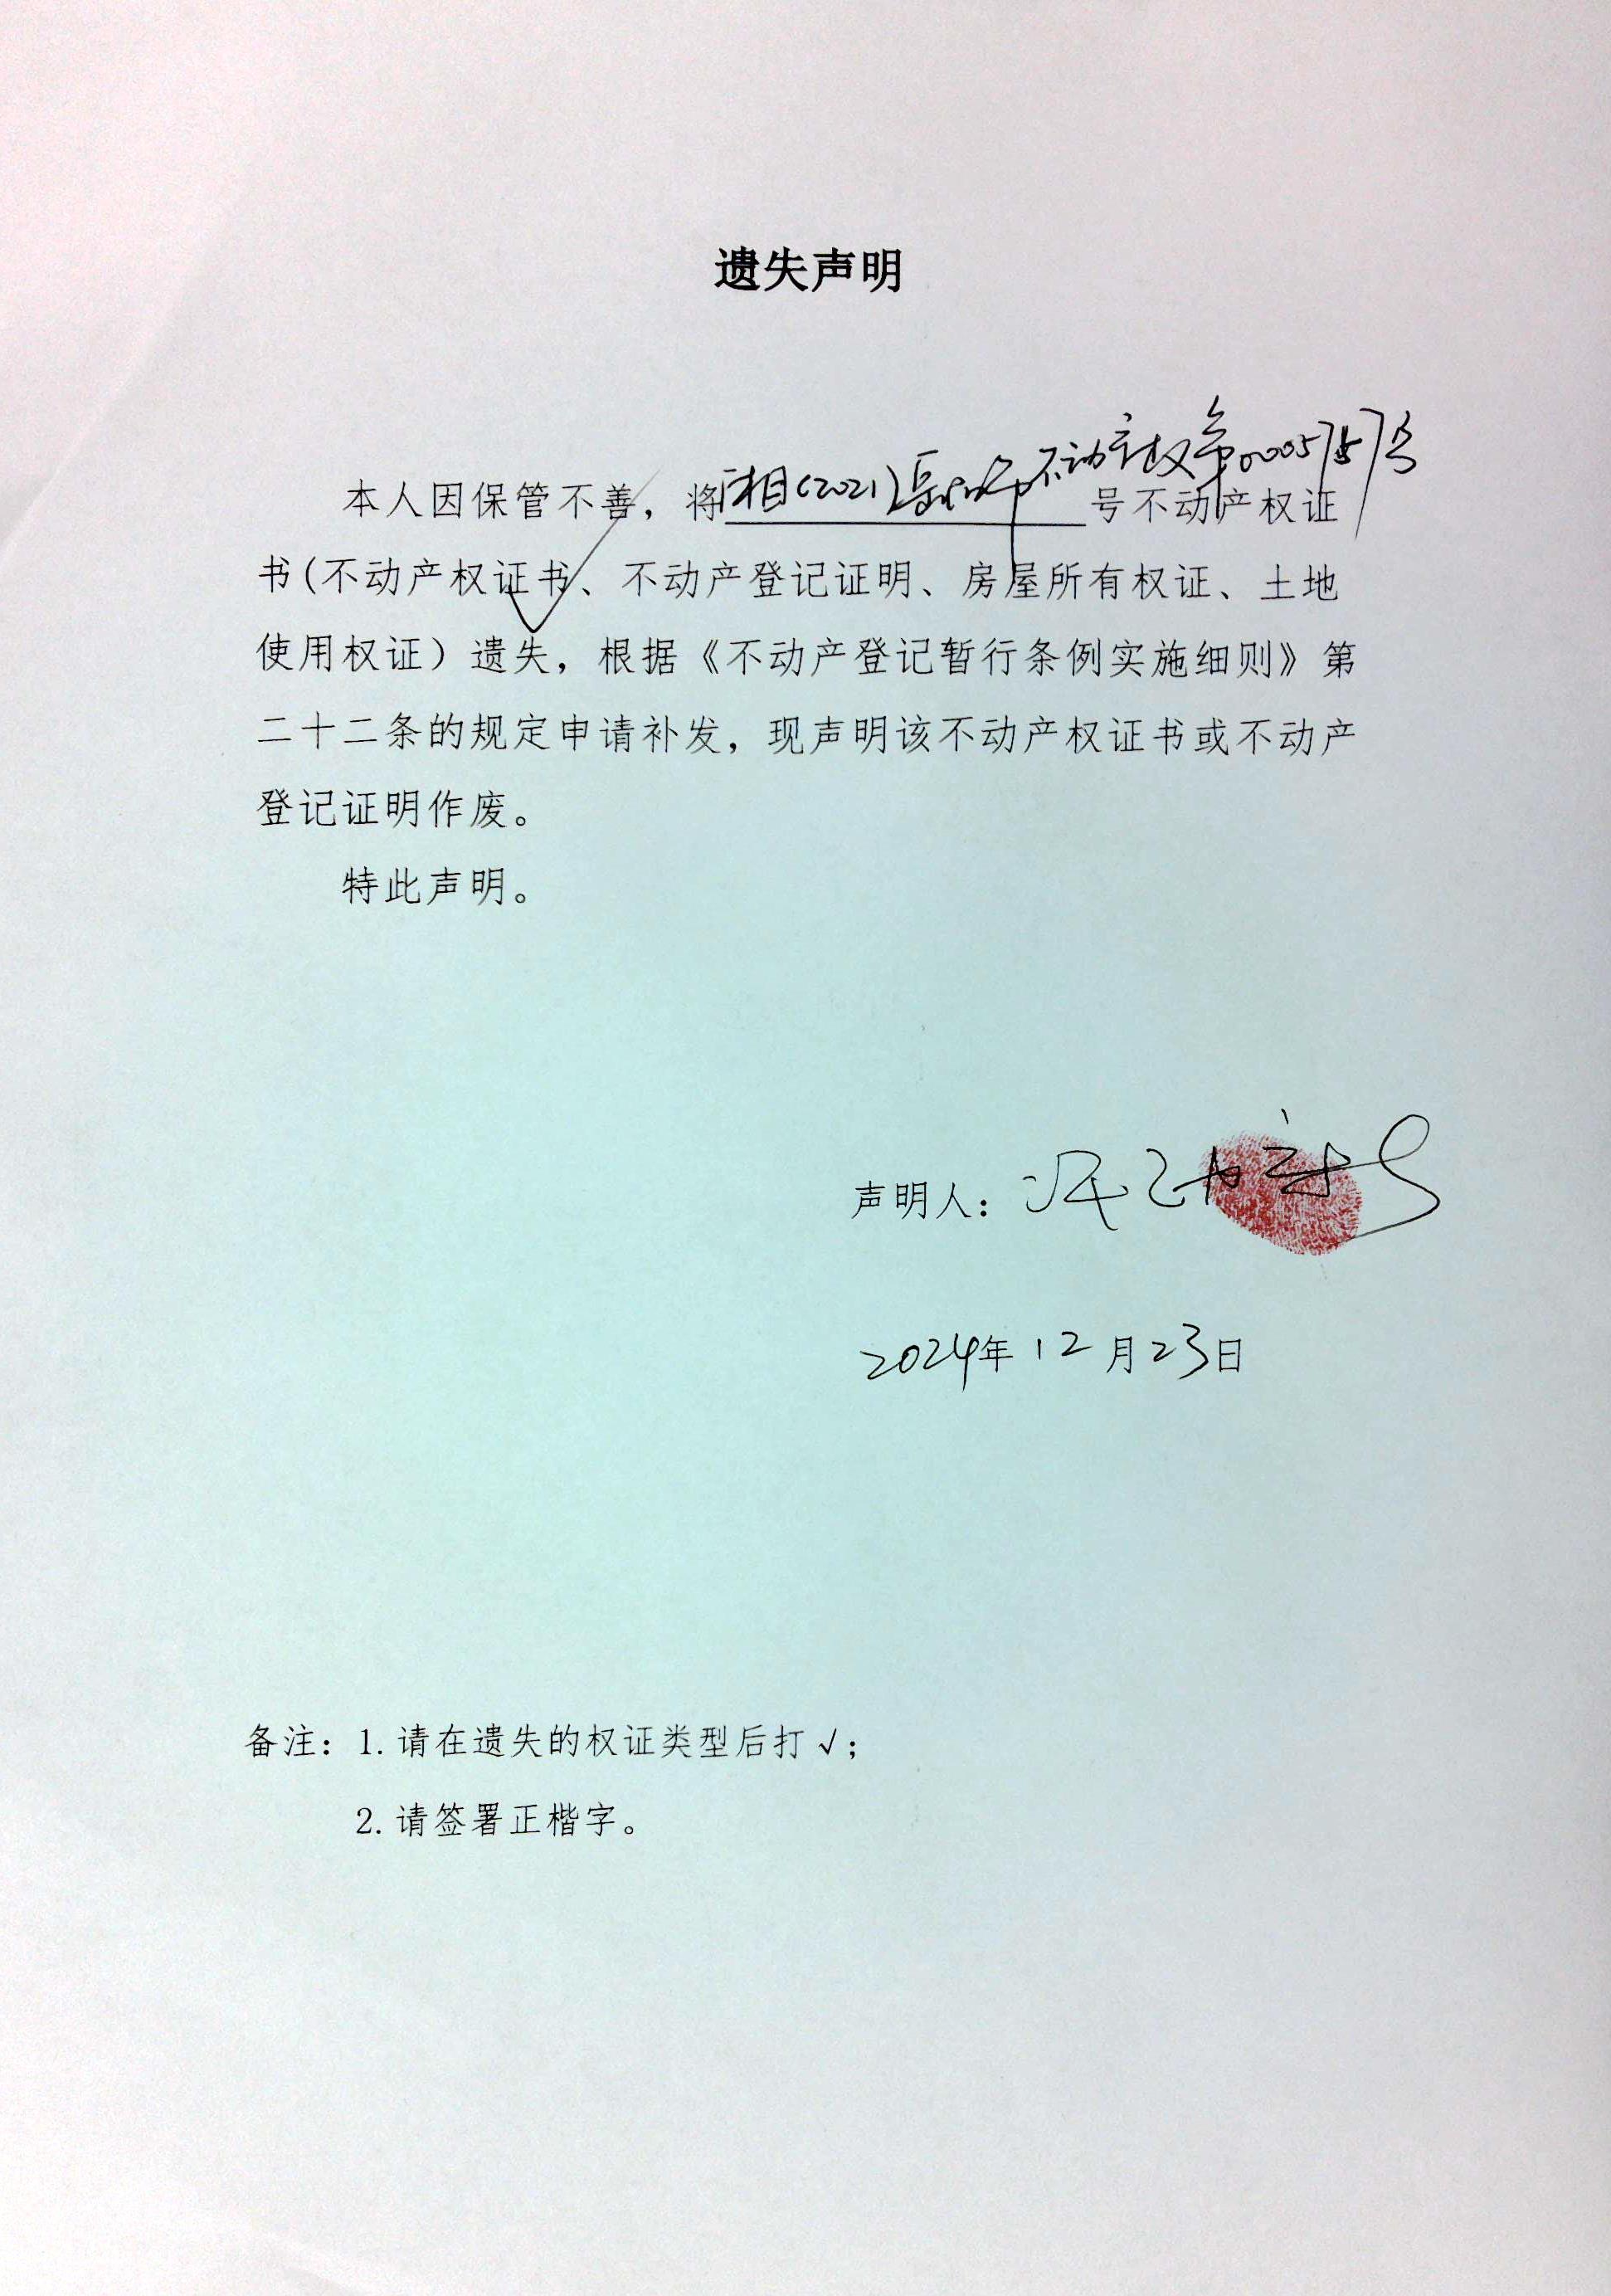 遗失声明
本人因保管不善，将湘(2021)岳阳市不动产权第0005757号号不动产权证
书(不动产权证书√、不动产登记证明、房屋所有权证、土地
使用权证）遗失，根据《不动产登记暂行条例实施细则》第
二十二条的规定申请补发，现声明该不动产权证书或不动产
登记证明作废。
特此声明。
声明人：
2024年12月23日
备注：1.请在遗失的权证类型后打√；
2.请签署正楷字。